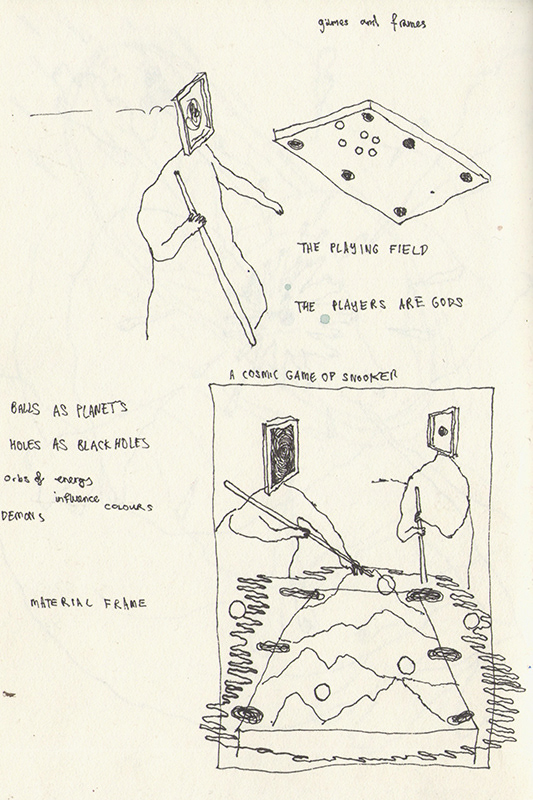 games and frames
THE PLAYING FIELD
THE PLAYERS ARE GODS
A COSMIC GAME OF SNOOKER
BALLS AS PLANETS
HOLES AS BLACKHOLES
orbs of energy
influence
COLOURS
DEMONS
MATERIAL FRAME